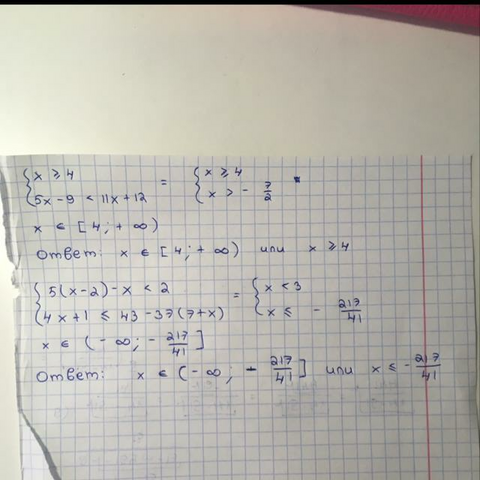 { x ≥ 4 = { x ≥ 4
{ 5x-9 < 11x+12 { x > - 7/2
x ∈ [4; +∞)
Ответ: x ∈ [4; +∞) или x ≥ 4
{ 5(x-2)-x < 2 = { x < 3
{ 4x+1 ≤ 43-37(7+x) { x ≤ - 217/41
x ∈ (-∞; - 217/41]
Ответ: x ∈ (-∞; - 217/41] или x ≤ - 217/41